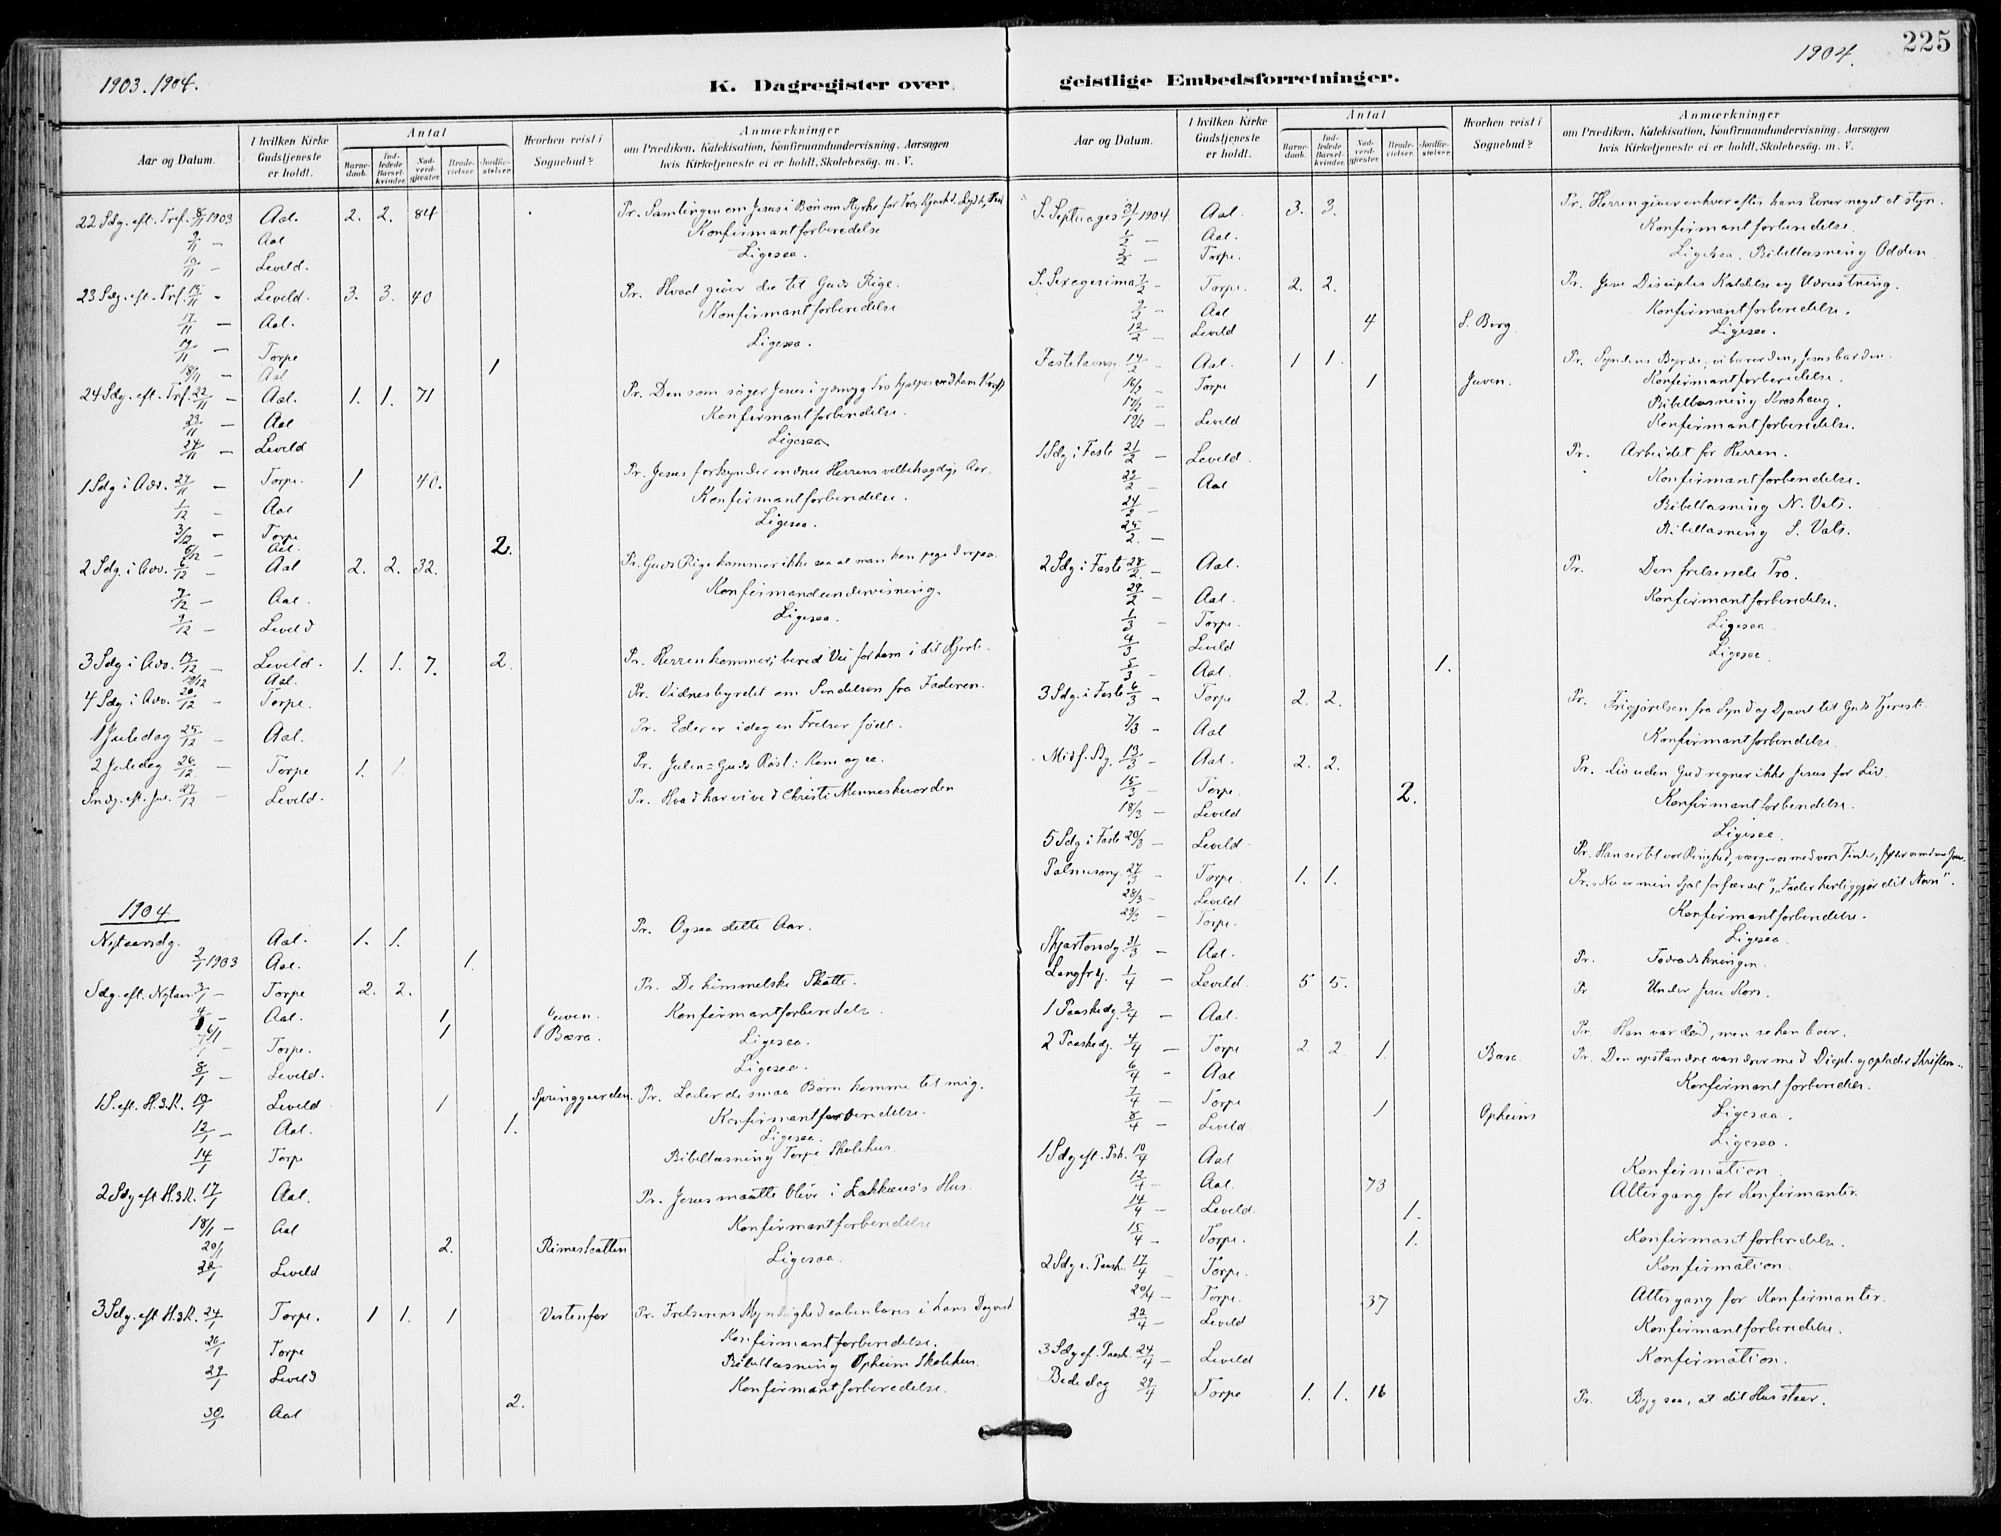 1903. 1904.
K. Dagregister over
Aar og Datum.
I hvilken Kirke Gudstjeneste er holdt.
Antal
Barne-daab.
Ind-ledede Barsel-kvinder.
Nad-verd-gjester.
Brude-vielser.
Jordfæ-stelser.
Hvorhen reist i Sognebud?
Anmærkninger
om Prædiken, Katekisation, Konfirmandundervisning, Aarsagen
hvis Kirketjeneste ei er holdt, Skolebesög, m. V.
22 Sdg. eft. Tref. 8/11 1903 Aal. 2. 2. 84 Pr. Samlingen om Jesus i Bön om Styrke for Tro,
9/11 — Aal Konfirmantforberedelse
Leveld. Ligesaa.
23 Sdg. eft. Trf. 15/11 - Leveld. 3. 3. 40 Pr. Hvad giver du til Guds Rige.
17/11 — Aal. Konfirmantforberedelse
19/11 — Torpe Ligesaa.
18/11 — Aal 1
24 Sdg. eft. Trf. 22/11 — Aal. 1. 1. 71 Pr. Den som söger Jesus i ydmyg Tro hjælpes
23/11 — Aal Konfirmantforberedelse.
Leveld Ligesaa
1 Sdg i Adv. 29/11 — Torpe. 1 40. Pr. Jesus forkynder endnu Herrens velbehagelige Aar.
1/12 — Aal Konfirmantforberedelse.
3/12 — Torpe Ligesaa.
Aal. 2.
2 Sdg. i Adv. 6/12 — Aal 2. 2. 32. Pr. Guds Rige kommer ikke saa at man kan pege derpaa.
7/12 — Aal. Konfirmandundervisning.
9/12 — Leveld Ligesaa.
3 Sdg i Adv. 13/12 — Leveld. 1. 1. 7. 2. Pr. Herren kommer; bered Vei for ham i dit Hjerte.
19/12 Aal.
4 Sdg i Adv. 20/12 - Torpe. Pr. Vidnesbyrdet om Sendelsen fra Faderen.
1 Juledag 25/12 — Aal. Pr. Eder er idag en Frelser födt.
2 Juledag 26/12 — Torpe 1. 1. Pr. Julen = Guds Röst: Kom og se.
Sndg. eft. Jul. 27/12 — Leveld. Pr. Hvad har vi ved Christi Menneskevorden
1904
Nytaarsdg. Aal. 1. 1. Pr. Ogsaa dette Aar.
2/1 1903 Aal. 1.
Sdg. eft. Nytaar 3/1 — Torpe 2. 2. Pr. De himmelske Skatte.
4/1 — Aal. 1 Juven. Konfirmantforberedelse.
6/1 — Torpe. 1 Bæra. Ligesaa.
8/1 — Leveld. Ligesaa.
1 S. eft. H.3.K. 10/1 Leveld 1 Springgaarden Pr. Lader de smaa Börn komme til mig.
12/1 — Aal. 1. Konfirmantforberedelse.
Ligesaa.
14/1 Torpe Bibellæsning Torpe Skolehus.
2 Sdg eft H.3.K. 17/1 Aal. Pr. Jesus maatte blive i Zakkæus's Hus.
18/1 — Aal Konfirmantforberedelse
20/1 2. Rimeskatten
Leveld Ligesaa.
3 Sdg. eft H.3.K. 24/1 Torpe. 1 1. 1 Vestenfor Pr. Frelserens Myndighed aabenbares i hans
26/1 Torpe Konfirmantforberedelse.
Bibellæsning Opheim Skolehus.
29/1 Leveld Konfirmantforberedelse.
30/1 Aal 2.
1904.
225
geistlige Embedsforretninger.
Aar og Datum.
I hvilken Kirke Gudstjeneste er holdt.
Antal
Barne-daab.
Ind-ledede Barsel-kvinder.
Nad-verd-gjester.
Brude-vielser.
Jordfæ-stelser.
Hvorhen reist i Sognebud?
Anmærkninger
om Prædiken, Katekisation, Konfirmandundervisning, Aarsagen
hvis Kirketjeneste ei er holdt, Skolebesög, m. V.
S. Septuages 31/1 1904 Aal. 3. 3. Pr. Herren giver enhver efter hans Evner noget at styre.
1/2 — Aal. Konfirmantforberedelse.
Torpe. Ligesaa. Bibellæsning Odden.
S. Sexagesima 7/2 — Torpe. 2. 2. Pr. Jesu Disciples Kaldelse og Udrustning.
Aal Konfirmantforberedelse.
12/2 — Leveld 4 S. Berg. Ligesaa.
Fastelavns 14/2 — Aal. 1 1. Pr. Syndens Byrde; vi bærer den, Jesus bar den.
16/2 — Torpe 1 Juven. Konfirmantforberedelse.
17/2 — Bibellæsning Kroshaug.
19/2 — Leveld Konfirmantforberedelse.
1 Sdg i Faste 21/2 — Leveld. Pr. Arbeidet for Herren.
22/2 — Aal Konfirmantforberedelse.
24/2 — Bibellæsning N. Vats.
25/2 — Bibellæsning S. Vats.
2 Sdg i Faste 28/2 — Aal. Pr. Den frelsende Tro.
29/2 — Aal. Konfirmantforberedelse.
1/3 — Torpe. Ligesaa.
4/3 Leveld Ligesaa.
5/3 — Aal. 1.
3 Sdg. i Faste 6/3 — Torpe 2. 2. Pr. Frigjörelsen fra Synd og Djævel til Guds Tjeneste.
7/3 - Aal Konfirmantforberedelse.
Midf. Sg. 13/3 — Aal. 2. 2. Pr. Liv uden Gud regner ikke Jesus for Liv.
15/3 — Torpe. 2. Konfirmantforberedelse.
18/3 — Leveld Ligesaa.
5 Sdg i Faste 20/3 — Leveld. Pr. Han ser bl. vor Ringhed, værger os mod vore Fiender,
Palmesøng. 27/3 — Torpe. 1. 1. Pr. „Nu er min Sjæl forfærdet", „Fader herliggjør dit Navn".
28/3 — Leveld Konfirmantforberedelse.
29/3 — Torpe. Ligesaa.
Skjærtorsdg. 31/3 — Aal. Pr.
Langfrdg. 1/4 — Leveld. 5 5. Pr Under Jesu Kors.
1 Paaskedg. 3/4 — Aal. Pr Han var död, men se han lever.
2 Paaskedg. 4/4 — Torpe 2. 2. 1. Bære. Pr. Den opstandne vandrer med Discpl. og oplader Skriften.
6/4 — Aal Konfirmantforberedelse.
7/4 — Torpe 1 Opheim Ligesaa.
8/4 — Leveld. Ligesaa.
1 Sdg eft. Psk. 10/4 Aal Konfirmation.
12/4 — Aal. 73 Altergang for Konfirmanter.
14/4 — Leveld. 1.
15/4 — Torpe. 1. Konfirmantforberedelse.
2 Sdg e. Paask. 17/4 — Torpe. Konfirmation.
20/4 — Torpe. 37 Altergang for Konfirmanter.
22/4 — Leveld Konfirmantforberedelse.
3 Sdg ef. Paask. 24/4 — Leveld Konfirmation.
Bededag 29/4 Torpe 1. 1. 16 Pr. Byg saa, at dit Hus staar.